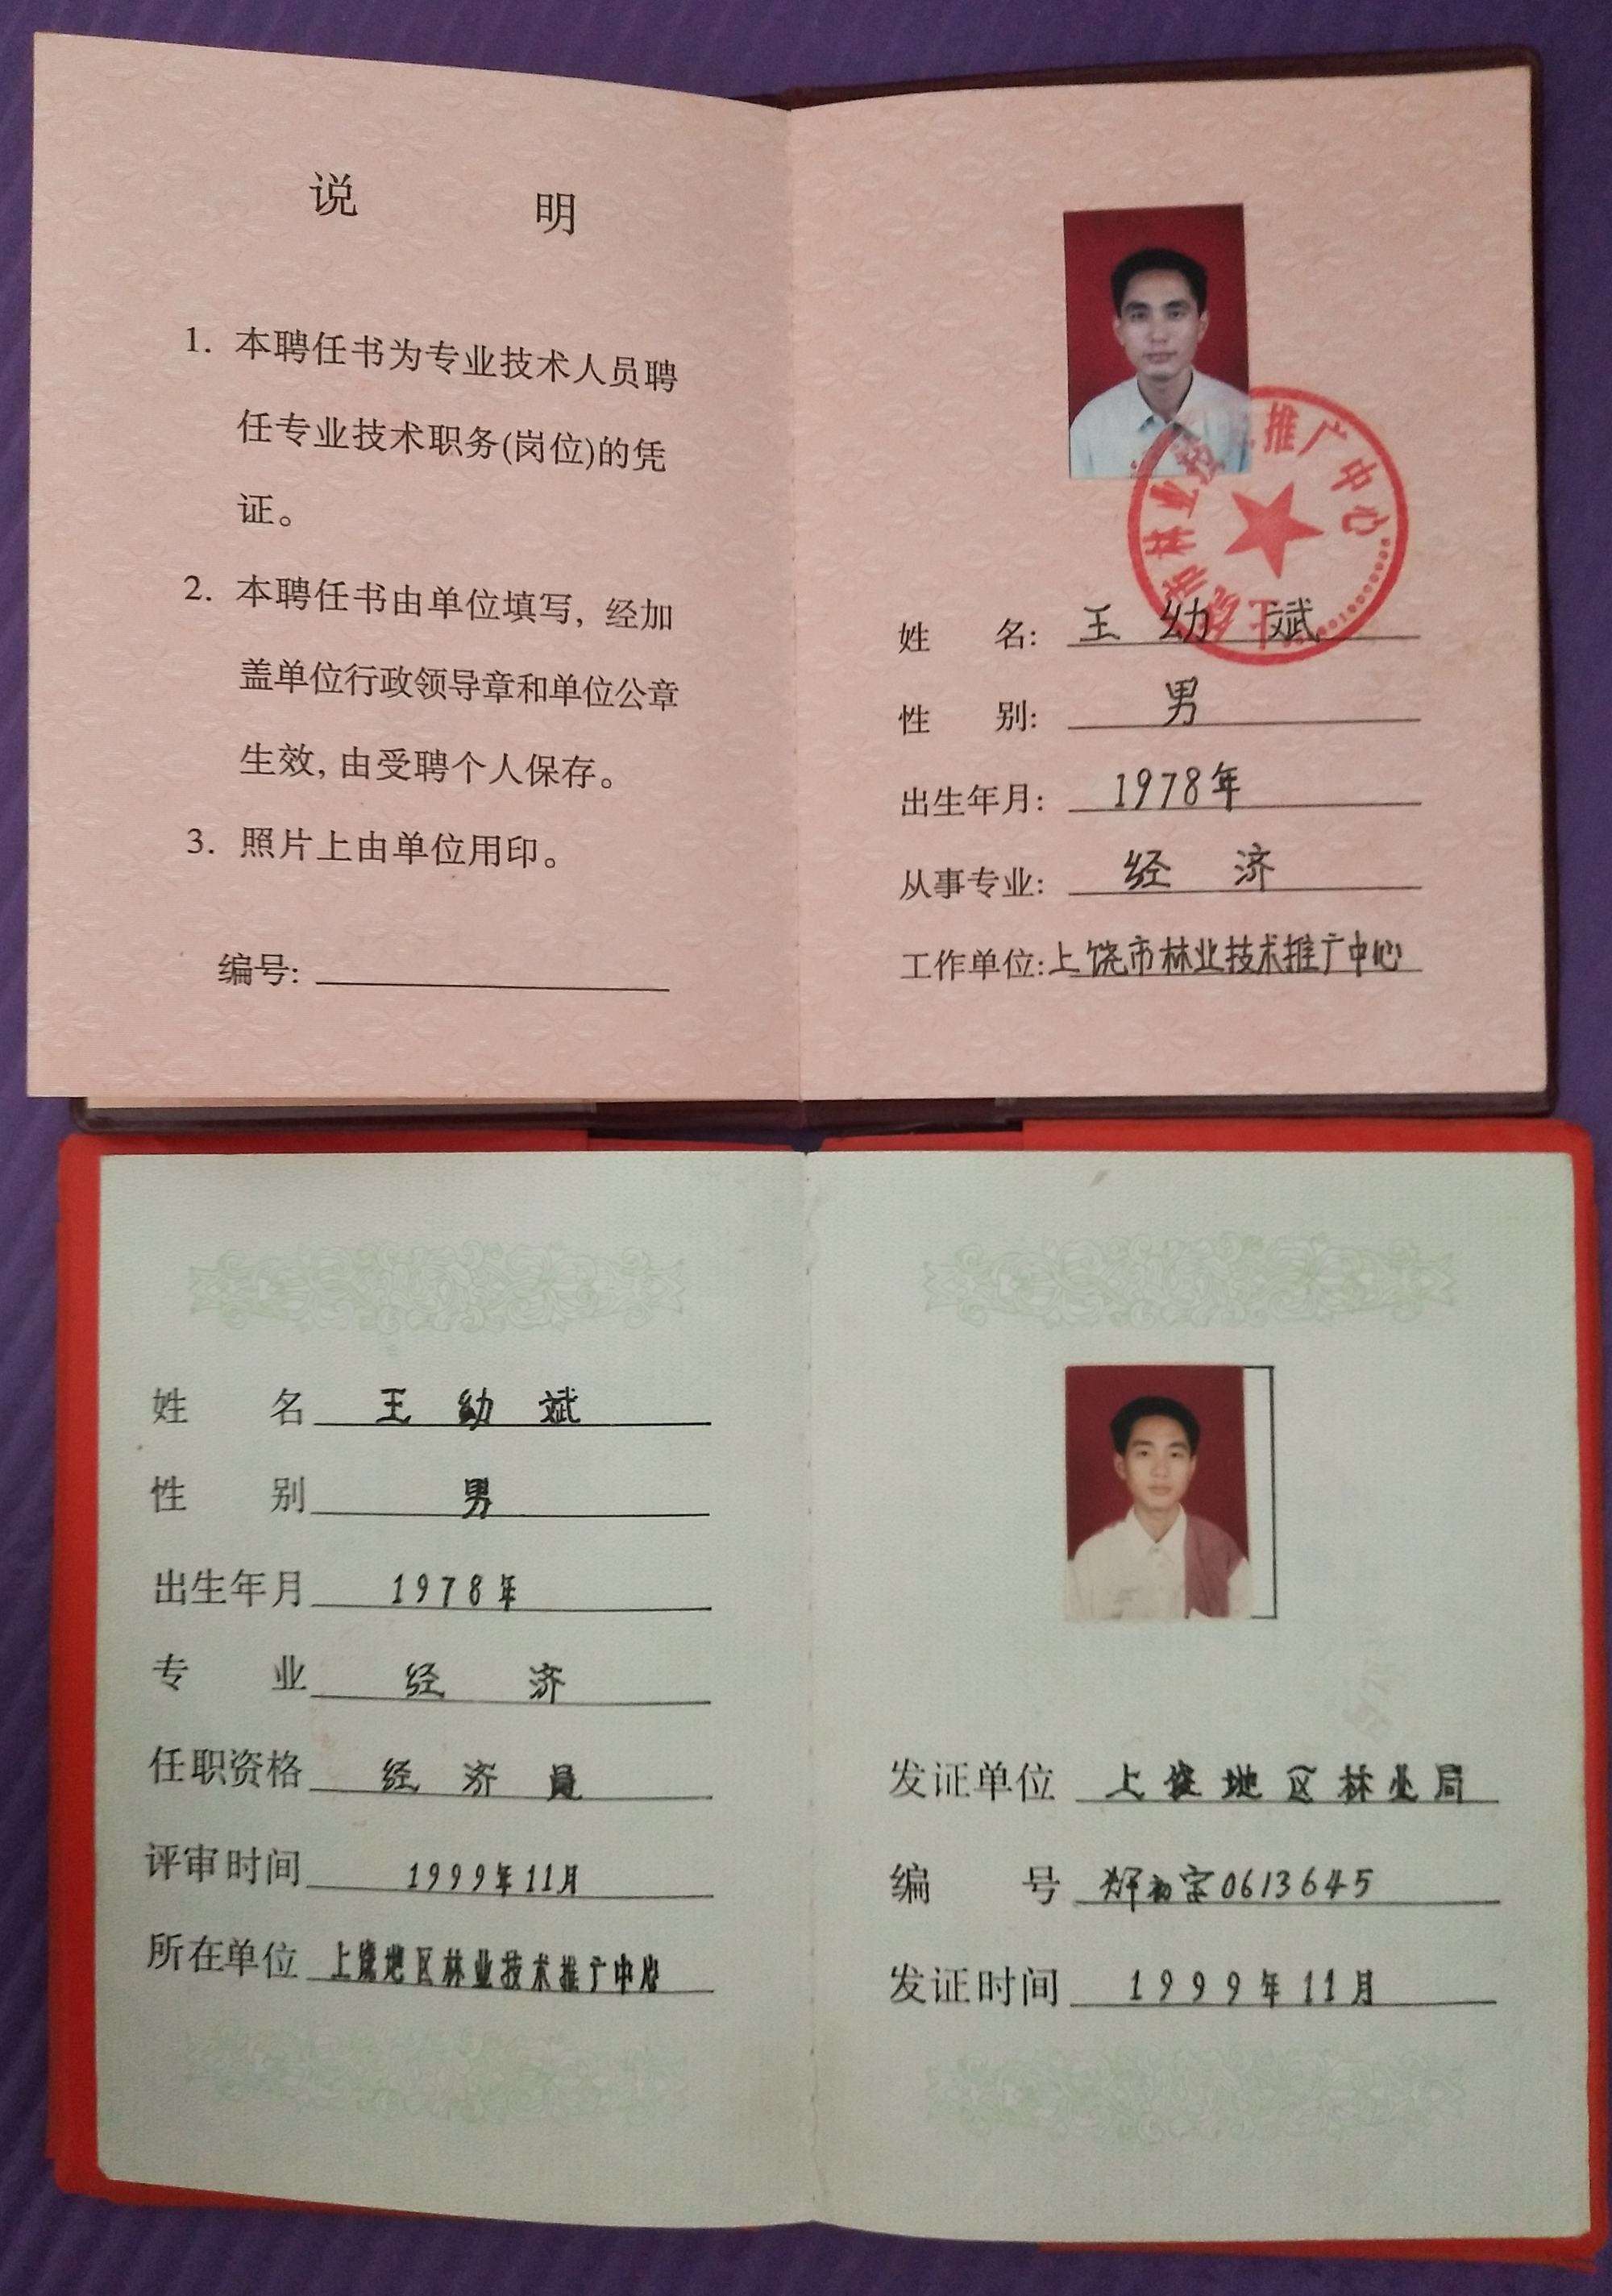 说 明
1. 本聘任书为专业技术人员聘
任专业技术职务(岗位)的凭
证。
2. 本聘任书由单位填写, 经加
盖单位行政领导章和单位公章
生效, 由受聘个人保存。
3. 照片上由单位用印。
编号:
上饶市林业技术推广中心
姓 名: 王 幼 斌
性 别: 男
出生年月: 1978年
从事专业: 经 济
工作单位: 上饶市林业技术推广中心
姓 名 王 幼 斌
性 别 男
出生年月 1978年
专 业 经 济
任职资格 经 济 员
评审时间 1999年11月
所在单位 上饶地区林业技术推广中心
发证单位 上饶地区林业局
编 号 初字0613645
发证时间 1999年11月